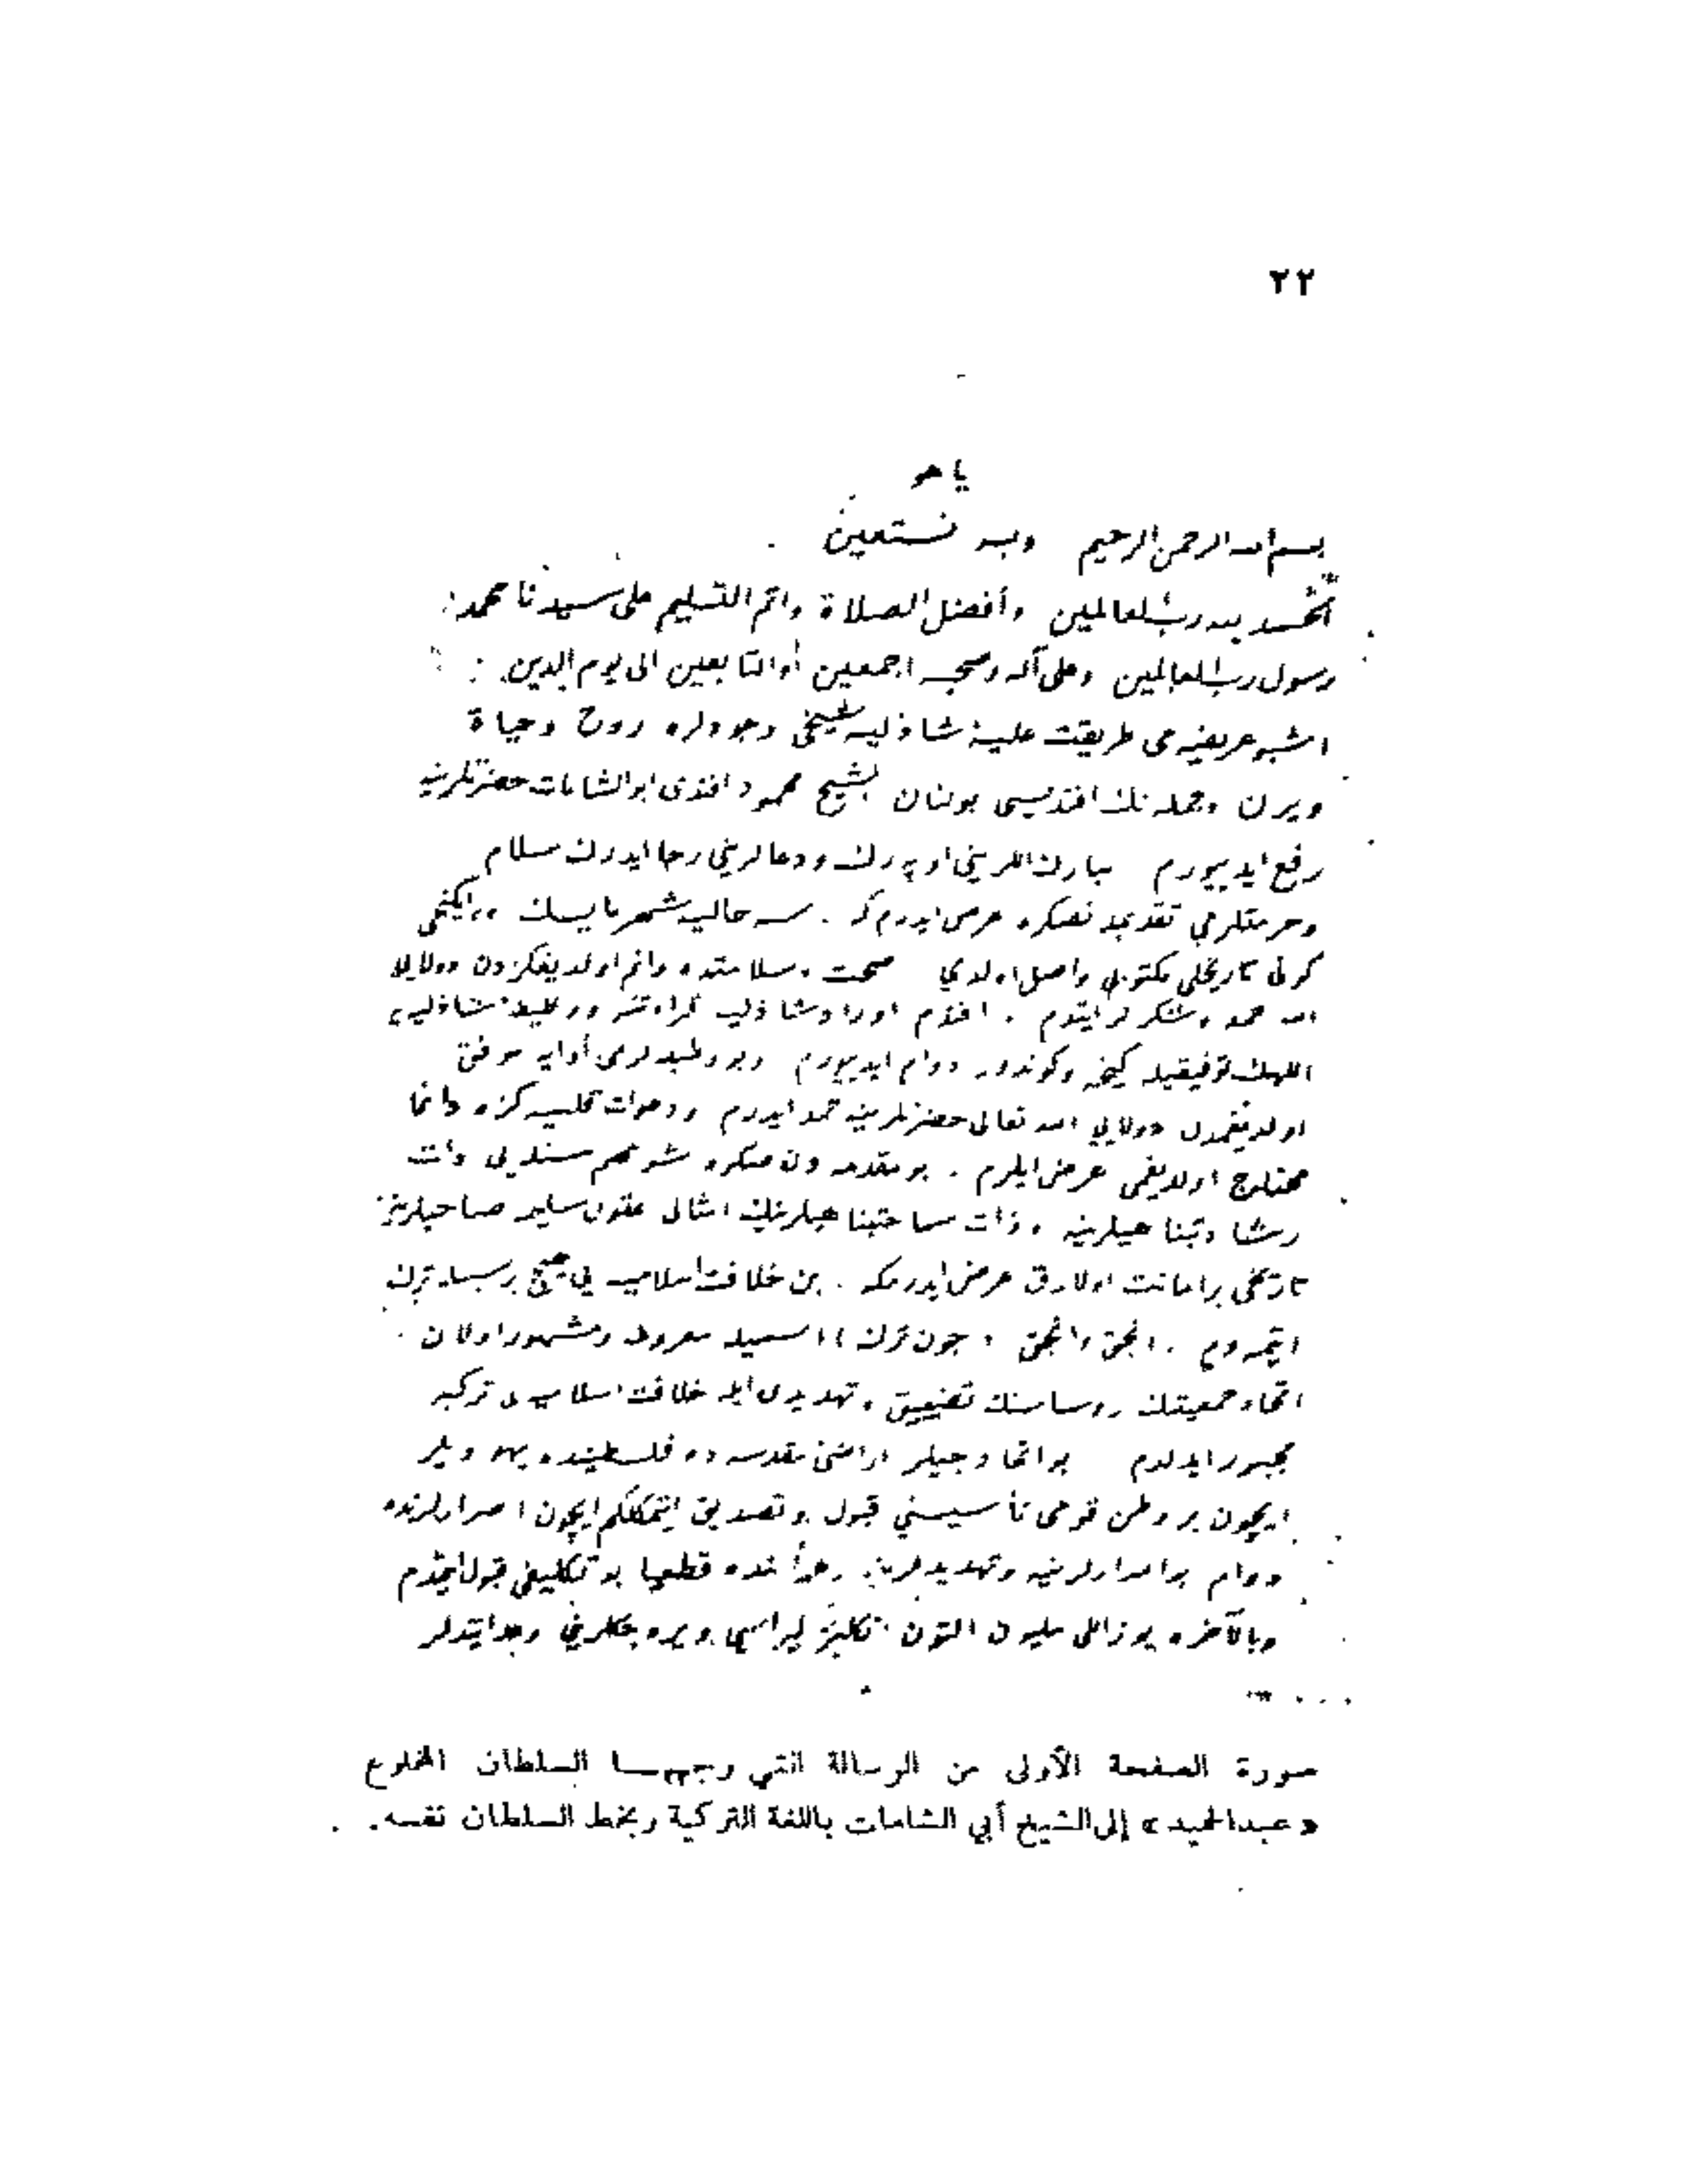 ٢٢
يا هو
بسم الله الرحمن الرحيم وبه نستعين
الحمد لله رب العالمين وأفضل الصلاة واتم التسليم على سيدنا محمد
رسول رب العالمين وعلى آله وصحبه اجمعين والتابعين الى يوم الدين
اشبو عريضه مى طريقت عليه شاذليه شيخى وجودلره روح وحياة
ويرن وجمله نك افنديسى بولنان الشيخ محمود افندى ابو الشامات حضرتلرينه
رفع ايدييورم مبارك اللرينى اوپه رك ودعالرينى رجا ايدرك سلام
وحرمتلرمى تقديم نصكره عرض ايدرم كه سنه حاليه شهر مايسك ايكنجى
كونى تاريخلى مكتوبى واصل اولدي صحت وسلامتده دائم اولديغكزدن دولايى
الله حمد وشكرلر ايتدم افندم اوراد شاذليه قراءتنه ووظيفه شاذليه يه
اللهك توفيقيله كيجه وكوندوز دوام ايدييورم وبو وظيفه لرمى أدايه موفق
اولديغمدن دولايى الله تعالى حضرتلرينه حمد ايدرم ودعوات قلبيه كزه دائما
محتاج اولديغمى عرض ايلرم بو مقدمه دن صكره شو مهم مسئله يى ذات
رشادتپناهيلرينه وذات سماحتپناهيلرينك امثالى عقول سليمه صاحبلرينه
تاريخى بر امانت اولارق عرض ايدرم كه بن خلافت اسلاميه يى هيچ بر سببله ترك
ايتمه دم انجق وانجق «جون ترك» اسميله معروف ومشهور اولان
اتحاد جمعيتنك رؤساسنك تضييق وتهديدى ايله خلافت اسلاميه يى تركه
مجبور ايدلدم بو اتحادجيلر اراضئ مقدسه ده فلسطينده يهوديلر
ايچون بر وطن قومى تأسيسني قبول وتصديق ايتمكلكم ايچون اصرارلرنده
دوام بو اصرارلرينه وتهديدلرينه رغماً بنده قطعيا بو تكليفى قبول ايتمدم
وبالآخره يوز اللى مليون التون انكليز ليراسى ويره جكلريني وعد ايتديلر
صورة الصفحة الأولى من الرسالة التي وجهها السلطان المخلوع
«عبدالحميد» إلى الشيخ أبي الشامات باللغة التركية وبخط السلطان نفسه.